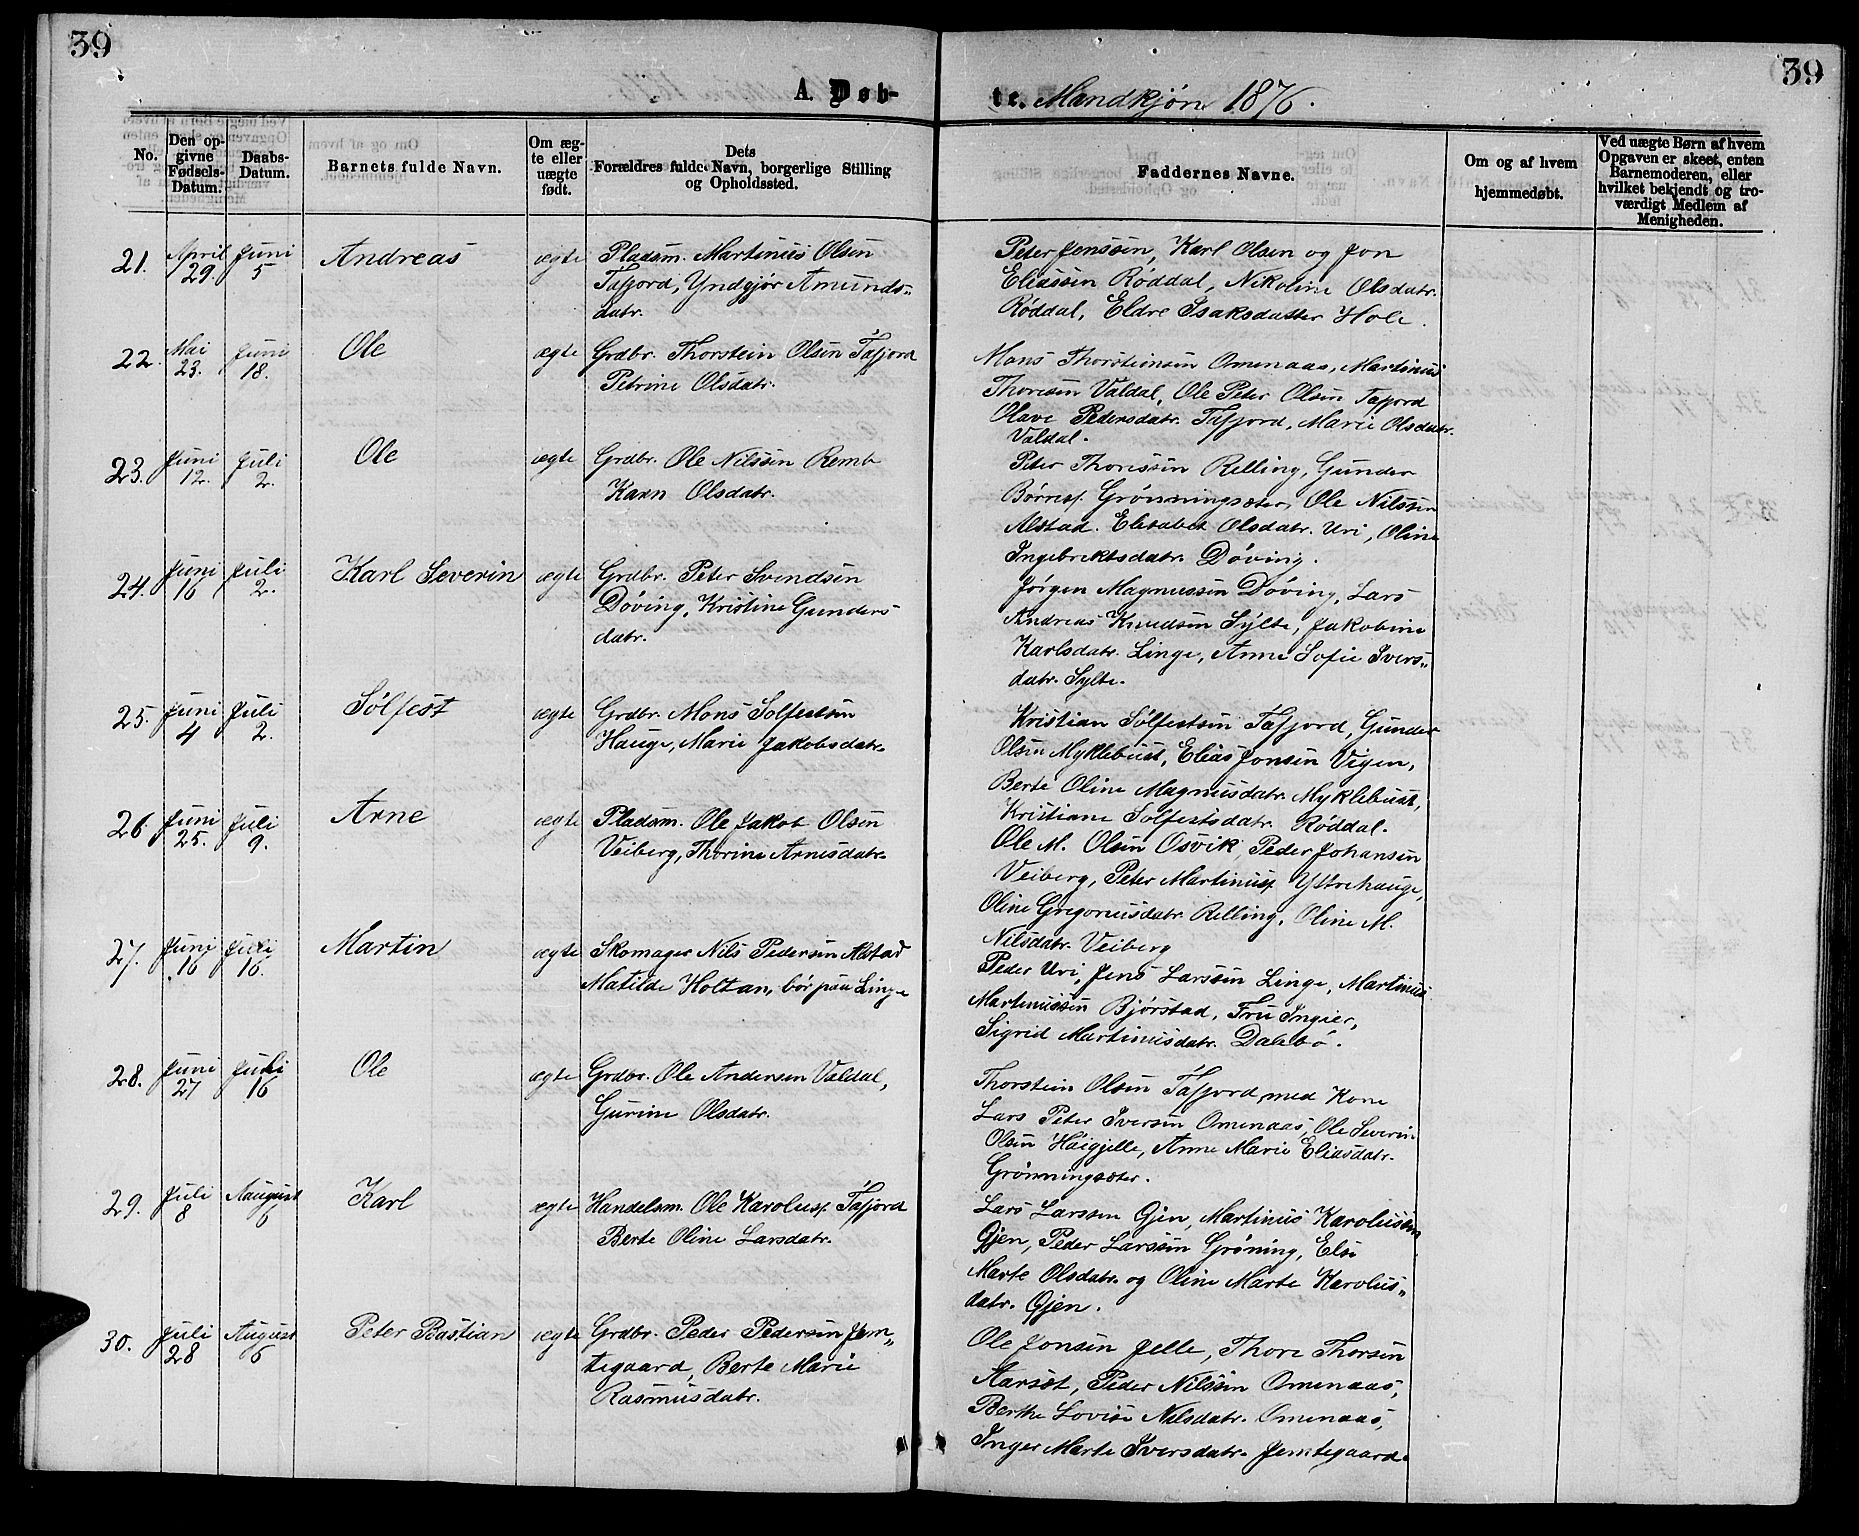 39
39
A. Døb-
te. Mandkjøn 1876.
No.
Den op-
givne
Fødsels-
Datum.
Daabs-
Datum.
Barnets fulde Navn.
Om æg-
te eller
uægte
født.
Dets
Forældres fulde Navn, borgerlige Stilling
og Opholdssted.
Faddernes Navne.
Om og af hvem
hjemmedøbt.
Ved uægte Børn af hvem
Opgaven er skeet, enten
Barnemoderen, eller
hvilket bekjendt og tro-
værdigt Medlem af
Menigheden.
21. April 29 Juni 5 Andreas ægte Pladsm. Martinus Olsen
Tafjord, Yndgjør Amunds-
datr.
Peter Jenssen, Karl Olsen og Jon
Eliassen Røddal, Nikoline Olsdatr.
Røddal, Eldre Isaksdatter Hole.
22. Mai 23. Juni 18. Ole ægte Grdbr. Thorstein Olsen Tafjord
Petrine Olsdatr.
Mons Thorsteinsen Omenaas, Martinus
Thoresen Valdal, Ole Peter Olsen Tafjord
Olave Pedersdatr. Tafjord, Marie Olsdatr.
Valdal.
23. Juni 12. Juli 2. Ole ægte Grdbr. Ole Nilssen Remb
Karn Olsdatr.
Peter Thoressen Relling, Gunder
Børres. Grønningsæter, Ole Nilssen
Alstad. Elisabet Olsdatr. Uri, Oline
Ingebrektsdatr. Døving.
24. Juni 16 Juli 2. Karl Severin ægte Grdbr. Peter Svendsen
Døving, Kristine Gunders-
datr.
Jørgen Magnussen Døving, Lars
Andreas Knudsen Sylte, Jakobine
Karlsdatr. Linge, Anne Sofie Ivers-
datr. Sylte.
25. Juni 4 Juli 2. Sølfest ægte Grdbr. Mons Solfestsen
Hauge, Marie Jakobsdatr.
Kristian Sølfestsen Tafjord, Gunder
Olsen Myklebust, Elias Jonsen Vigen,
Berte Oline Magnusdatr. Myklebust,
Kristiane Solfestsdatr. Røddal.
26. Juni 25. Juli 9. Arne ægte Pladsm. Ole Jakob Olsen
Veiberg, Thorine Arnesdatr.
Ole M. Olsen Osvik, Peder Johansen
Veiberg, Peter Martinus. Yttrehauge,
Oline Gregoriusdatr. Relling, Oline M.
Nilsdatr. Veiberg
27. Juni 16 Juli 16. Martin ægte Skomager Nils Pedersen Alstad
Matilde Holtan, bor paa Linge
Peder Uri, Jens Larssen Linge, Martinus
Martinussen Bjørstad, Fru Ingier,
Sigrid Martinusdatr. Dalebø.
28. Juni 27 Juli 16 Ole ægte Grdbr. Ole Andersen Valdal,
Gurine Olsdatr.
Thorstein Olsen Tafjord med Kone
Lars Peter Iversen Omenaas, Ole Severin
Olsen Høigjelle, Anne Marie Eliasdatr.
Grønningsæter.
29. Juli 8 Aaugust 6 Karl ægte Handelsm. Ole Karolus. Tafjord
Berte Oline Larsdatr.
Lars Larssen Gjen, Martinus Karolussen
Gjen, Peder Larssen Grøning, Else
Marte Olsdatr. og Oline Marte Karolus-
datr. Gjen.
30. Juli 28 August 6 Peter Bastian ægte Grdbr. Peder Pedersen Jem-
tegaard, Berte Marie
Rasmusdatr.
Ole Jonsen Jelle, Thore Thorsen
Aarset, Peder Nilssen Omenaas,
Berthe Lovise Nilsdatr. Omenaas,
Inger Marte Iversdatr. Jemtegaard.